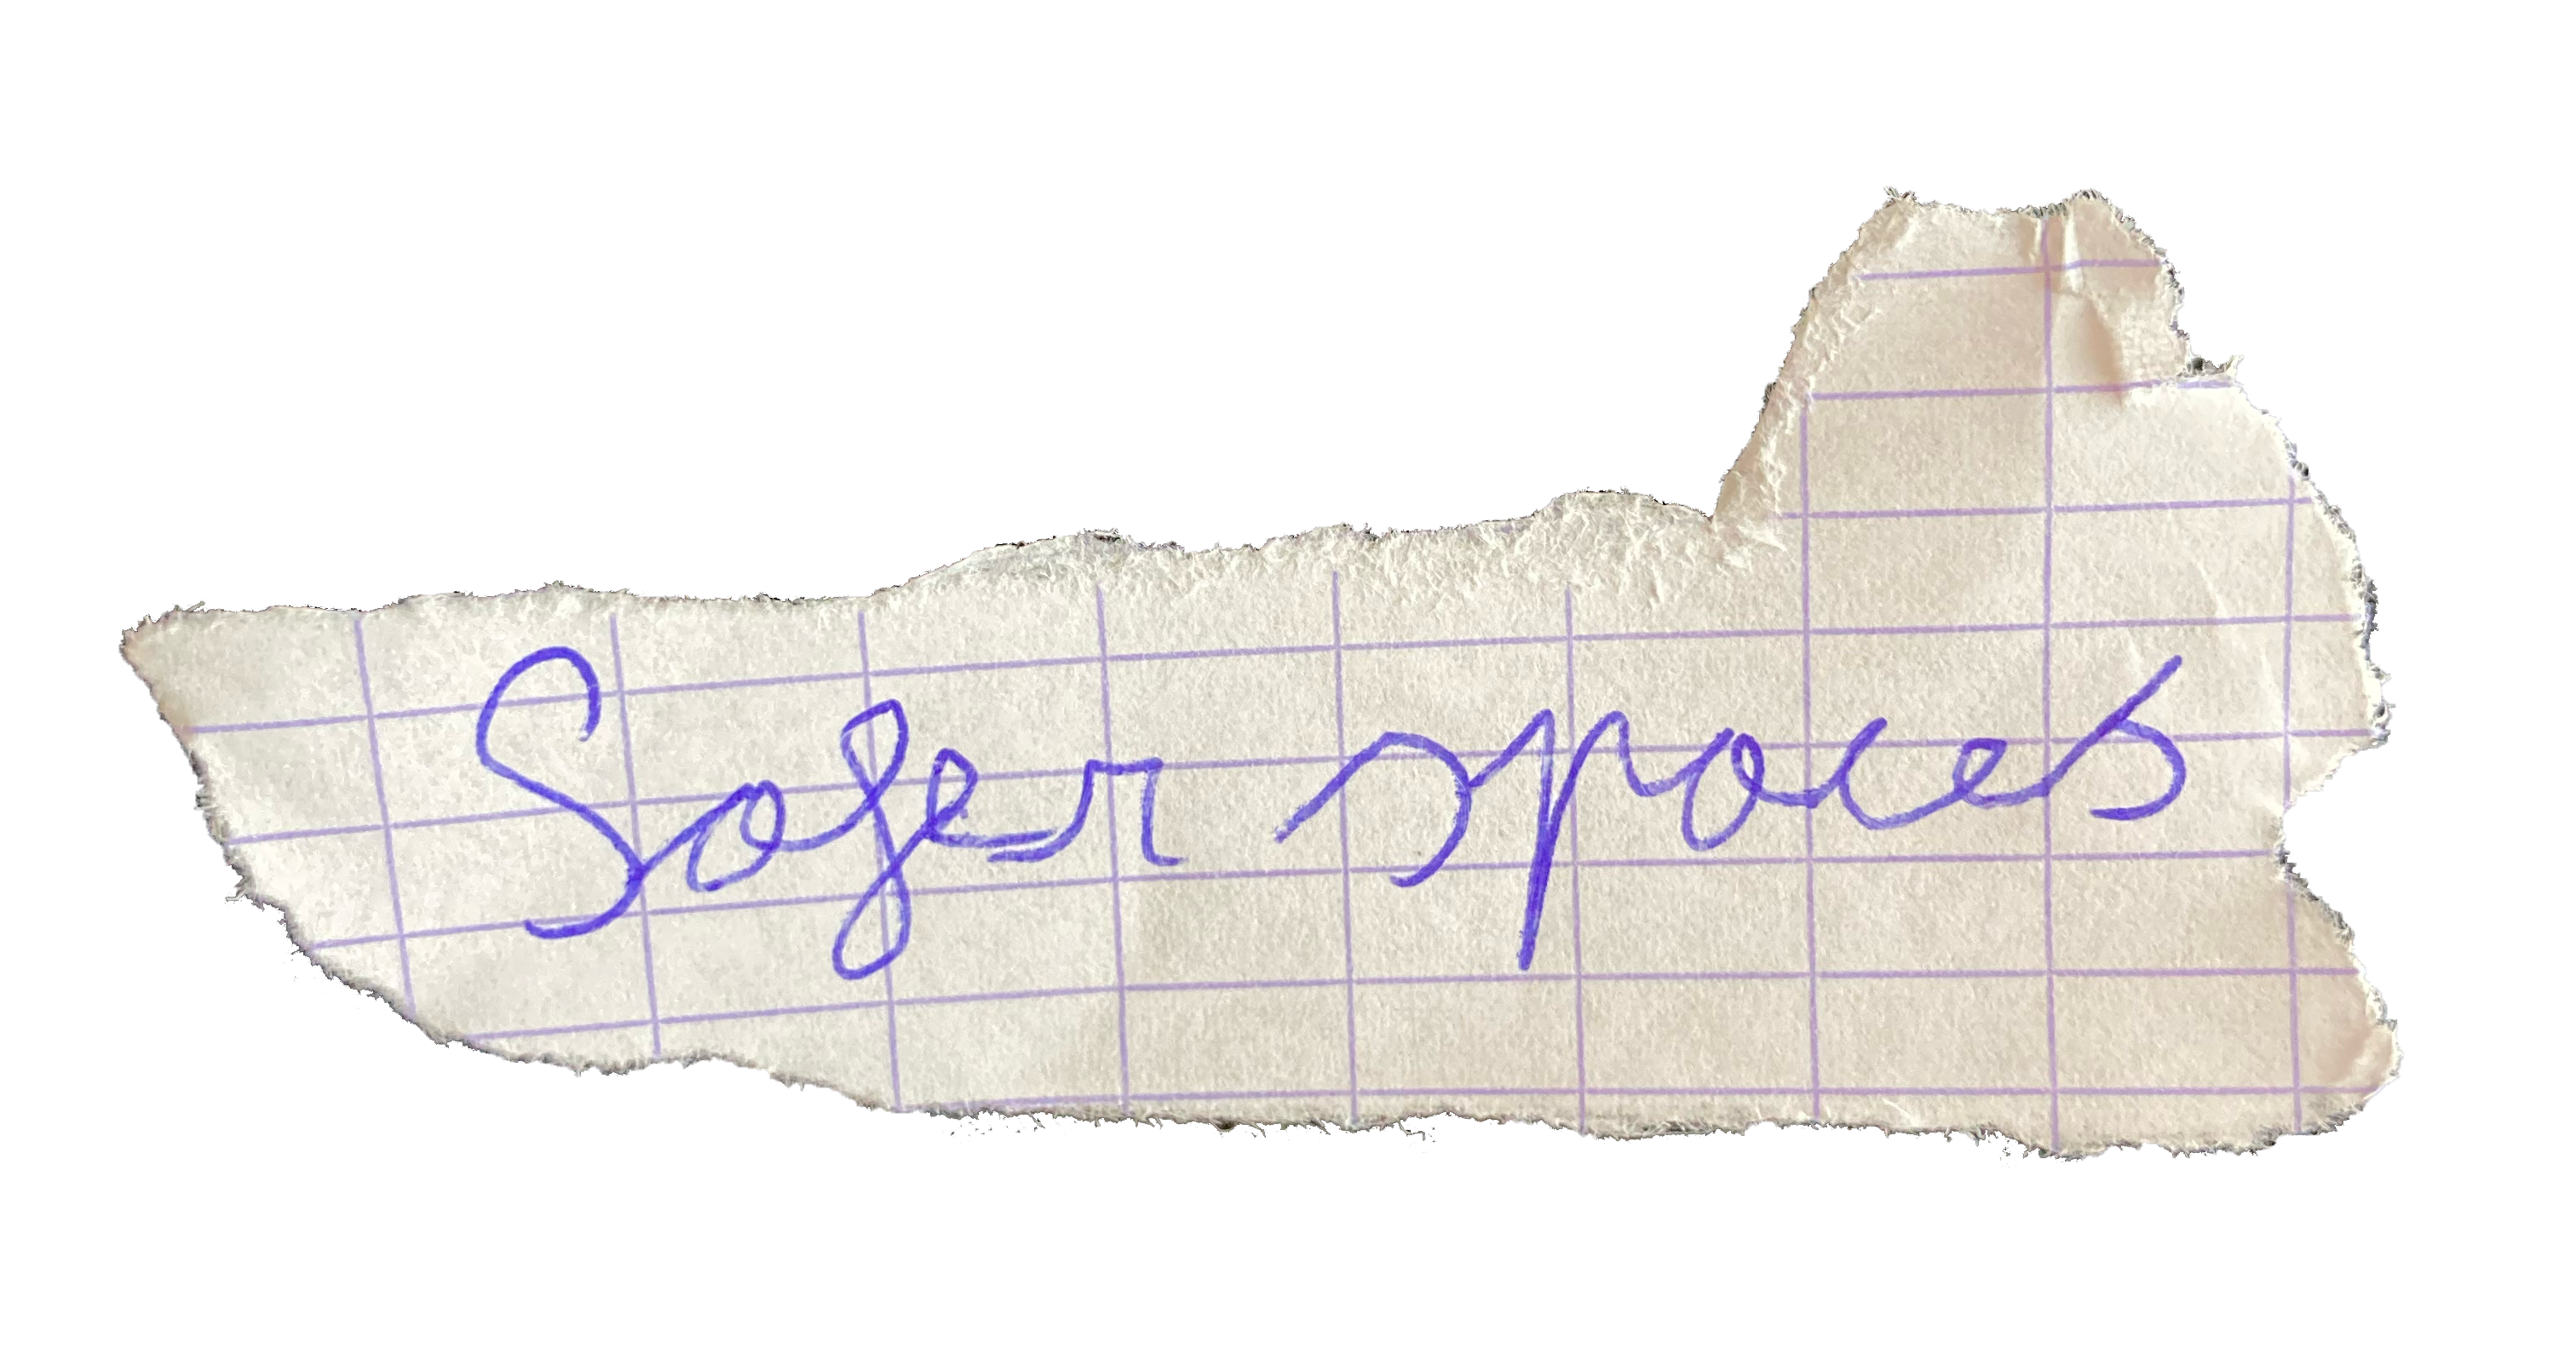 Safer spaces